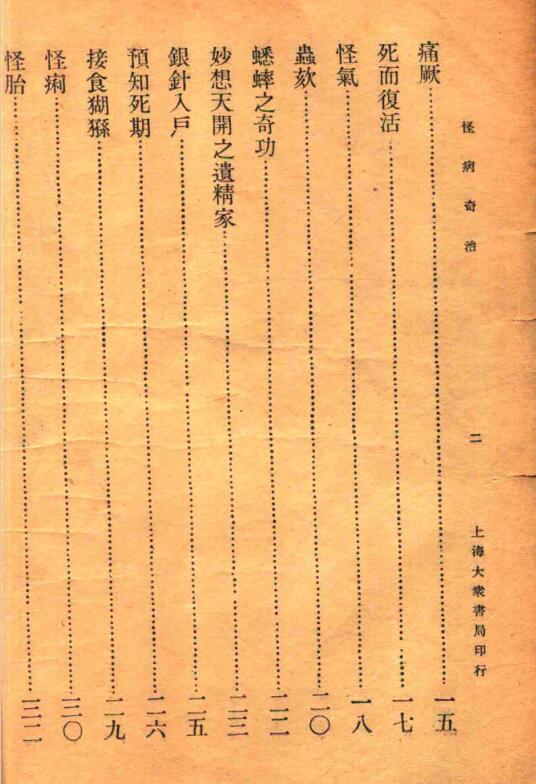 怪病奇治
二
上海大衆書局印行
痛厥…一五
死而復活…一七
怪氣…一八
蟲欬…二〇
蟋蟀之奇功…二二
妙想天開之遺精家…二三
銀針入戶…二五
預知死期…二六
接食猢猻…二九
怪痢…三〇
怪胎…三二